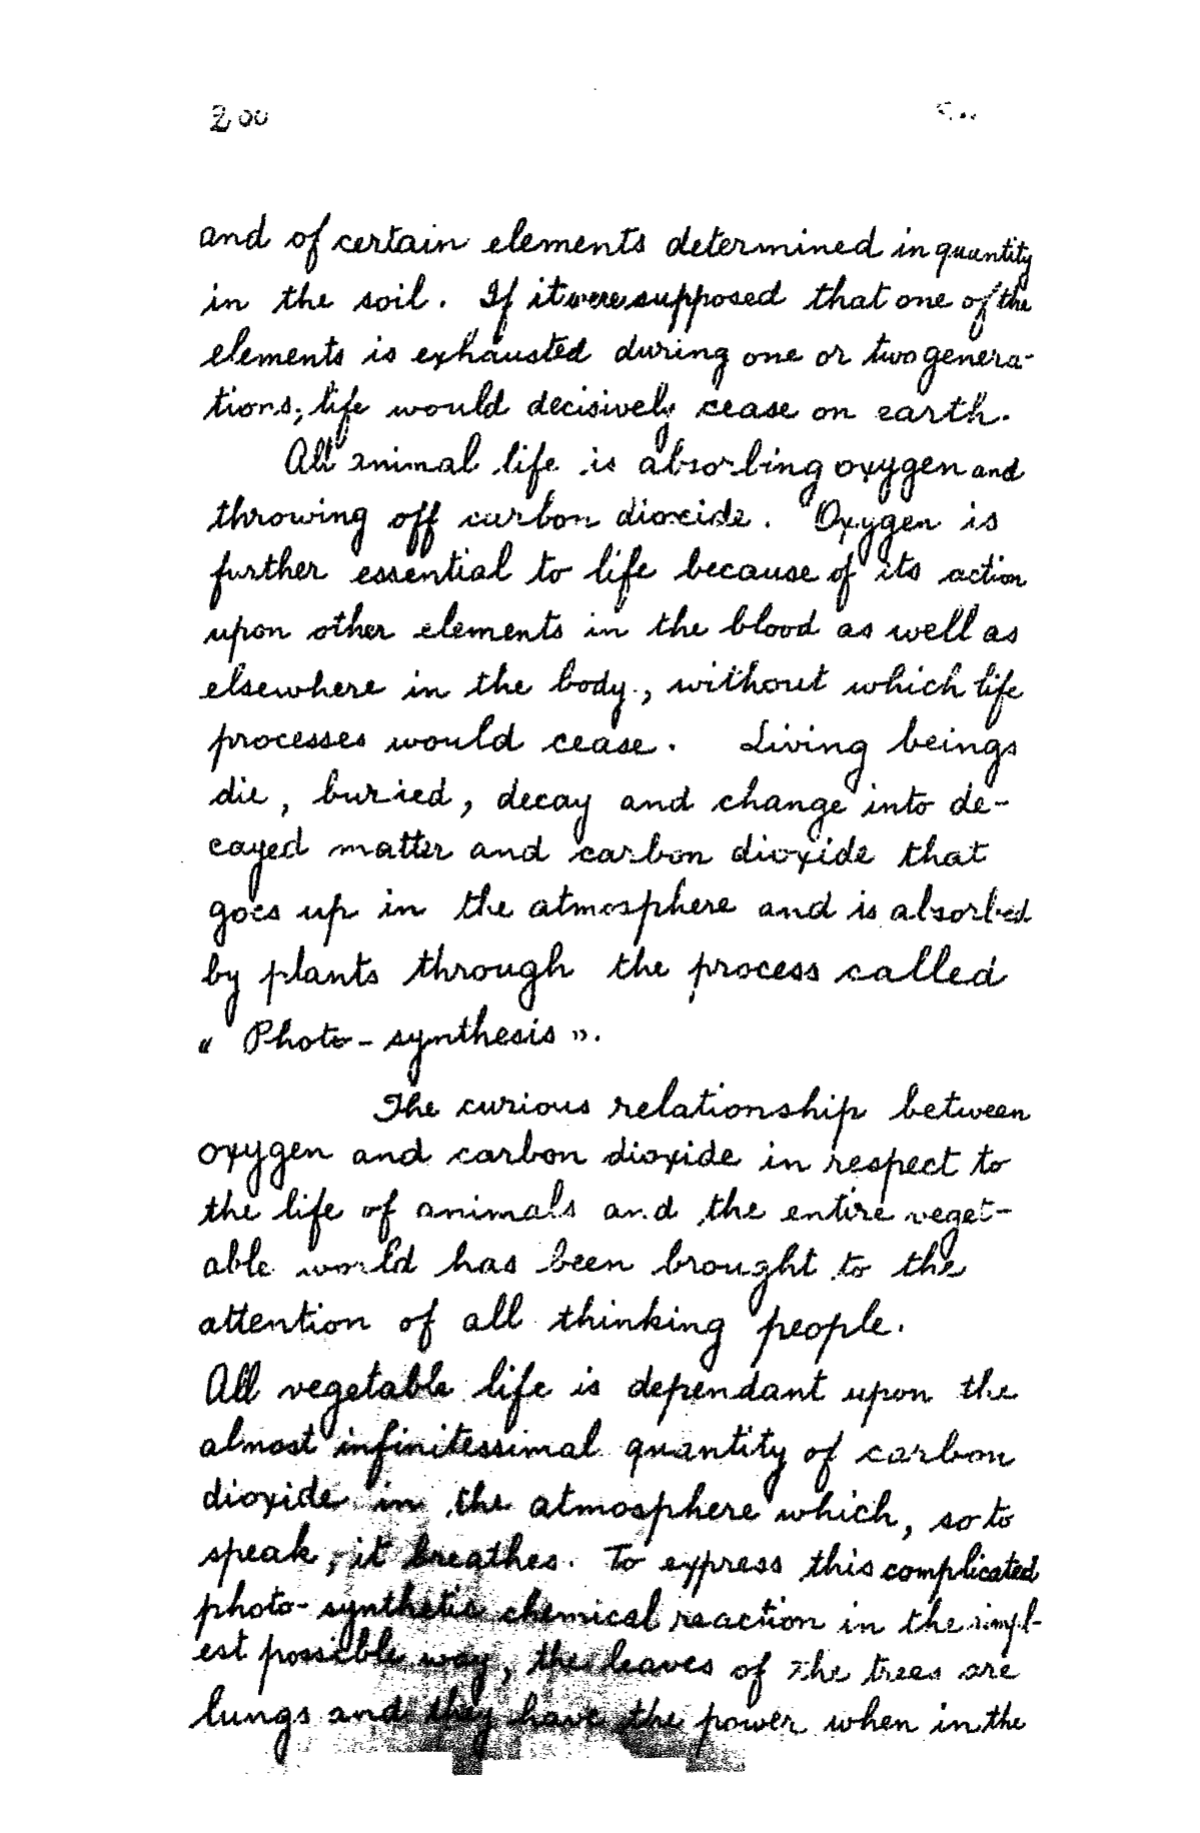 200
and of certain elements determined in quantity
in the soil. If it were supposed that one of the
elements is exhausted during one or two genera-
tions, life would decisively cease on earth.
All animal life is absorbing oxygen and
throwing off carbon dioxide. Oxygen is
further essential to life because of its action
upon other elements in the blood as well as
elsewhere in the body, without which life
processes would cease. Living beings
die, buried, decay and change into de-
cayed matter and carbon dioxide that
goes up in the atmosphere and is absorbed
by plants through the process called
« Photo-synthesis ».
The curious relationship between
oxygen and carbon dioxide in respect to
the life of animals and the entire veget-
able world has been brought to the
attention of all thinking people.
All vegetable life is dependant upon the
almost infinitessimal quantity of carbon
dioxide in the atmosphere which, so to
speak, it breathes. To express this complicated
photo-synthetic chemical reaction in the simpl-
est possible way, the leaves of the trees are
lungs and they have the power when in the